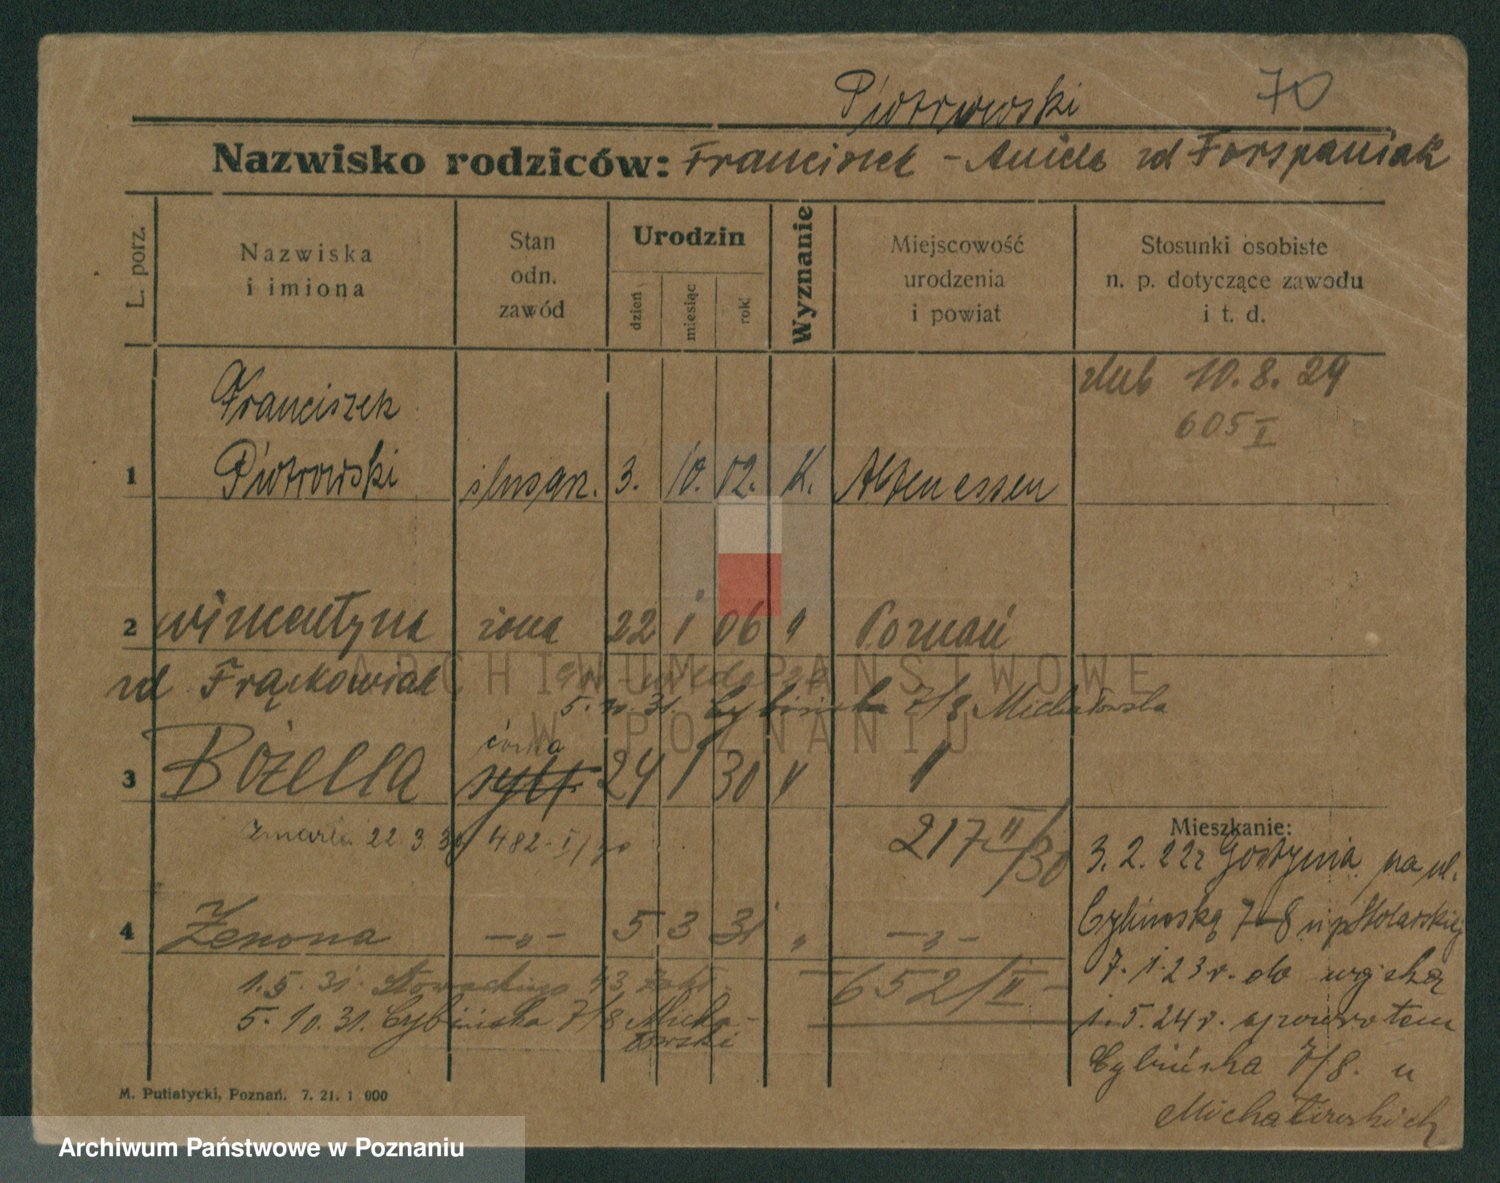 Piotrowski 70
Nazwisko rodziców: Franciszek - Aniela zd Forszpaniak
L. porz.
Nazwiska
i imiona
Stan
odn.
zawód
Urodzin
dzień
miesiąc
rok
Wyznanie
Miejscowość
urodzenia
i powiat
Stosunki osobiste
n. p. dotyczące zawodu
i t. d.
ślub 10.8.29
605 I
Franciszek
1 Piotrowski ślusarz. 3. 10. 02. K. Altenessen
2 Wincentyna żona 22 1 06 " Poznań
zd Frąckowiak
5.10.31. Cybińska 7/8 Michałowska
córka
3 Bożena 24 1 30 " "
zmarła 22.3.30 482
217 II/30
4 Zenona -"- 5 3 31 " -"-
1.5.31. Słowackiego 43
652/II
5.10.31. Cybińska 7/8 Micha-
łowski
Mieszkanie:
3.2.22r Gostynia na ul.
Cybińską 7-8 u p Stolarskiej
7.1.23r. do wojska
1.5.24r. spowrotem
Cybińska 7/8. u
Michałowskich
M. Putiatycki, Poznań. 7. 21. 1 000
ARCHIWUM PAŃSTWOWE
W POZNANIU
Archiwum Państwowe w Poznaniu